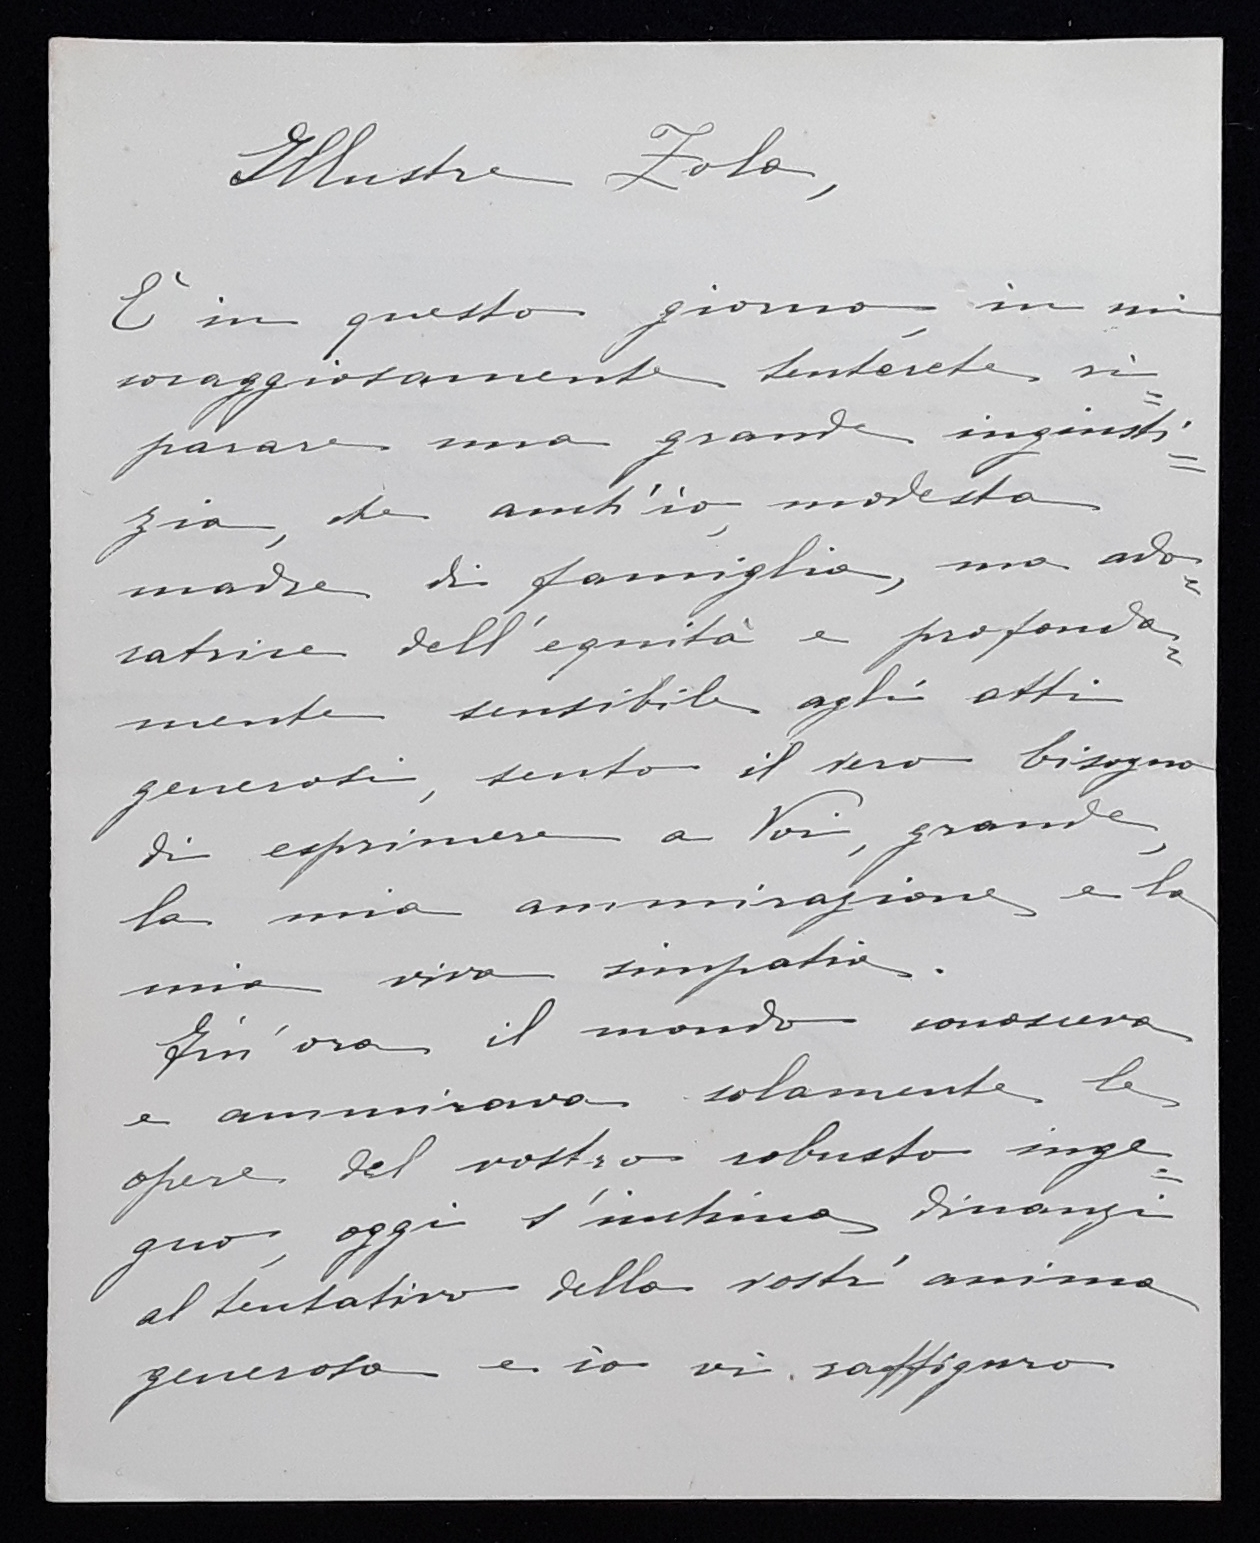 Illustre Zola,
È in questo giorno, in cui
coraggiosamente tenterete ri=
parare una grande ingiusti=
zia, che anch'io, modesta
madre di famiglia, ma ado=
ratrice dell'equità e profonda=
mente sensibile agli atti
generosi, sento il vero bisogno
di esprimere a Voi, grande,
la mia ammirazione e la
mia viva simpatia.
Fin'ora il mondo conosceva
e ammirava solamente le
opere del vostro robusto inge=
gno, oggi s'inchina dinanzi
al tentativo della vostr'anima
generosa e io vi raffiguro